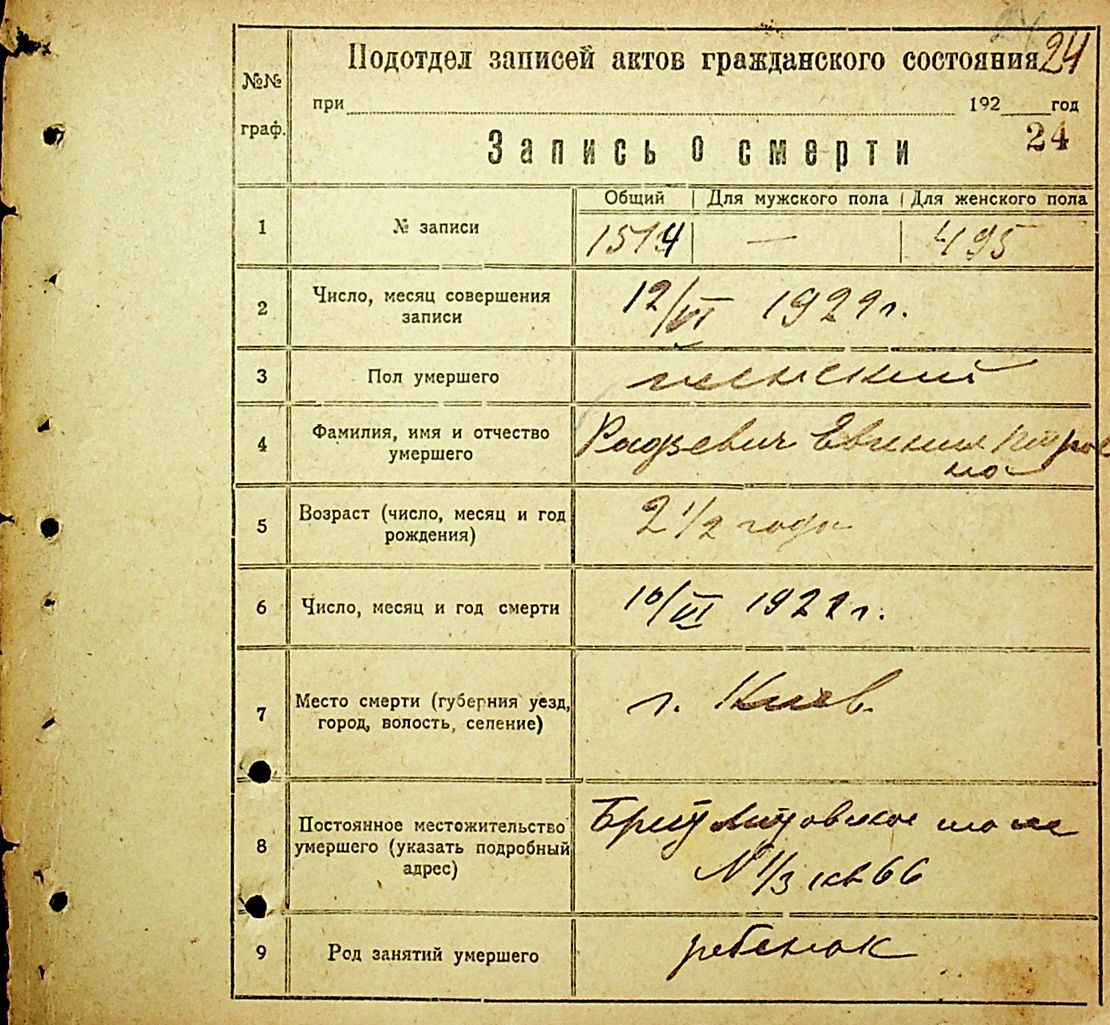 24
Подотдел записей актов гражданского состояния
№№
граф.
при 192 год
24
Запись о смерти
Общий Для мужского пола Для женского пола
1 № записи 1514 — 495
2 Число, месяц совершения
записи
12/VI 1922 г.
3 Пол умершего женский
4 Фамилия, имя и отчество
умершего
Радзевич Евгения Петров
на
5 Возраст (число, месяц и год
рождения)
2 1/2 года
6 Число, месяц и год смерти 10/VI 1922 г.
7 Место смерти (губерния уезд,
город, волость, селение)
г. Киев.
8 Постоянное местожительство
умершего (указать подробный
адрес)
Брест Литовское шоссе
№ 1/3 кв 66
9 Род занятий умершего ребенок